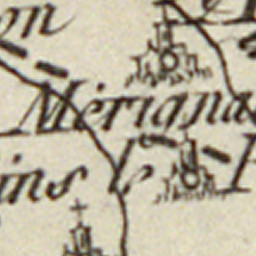 on
Mérigna
ins le P